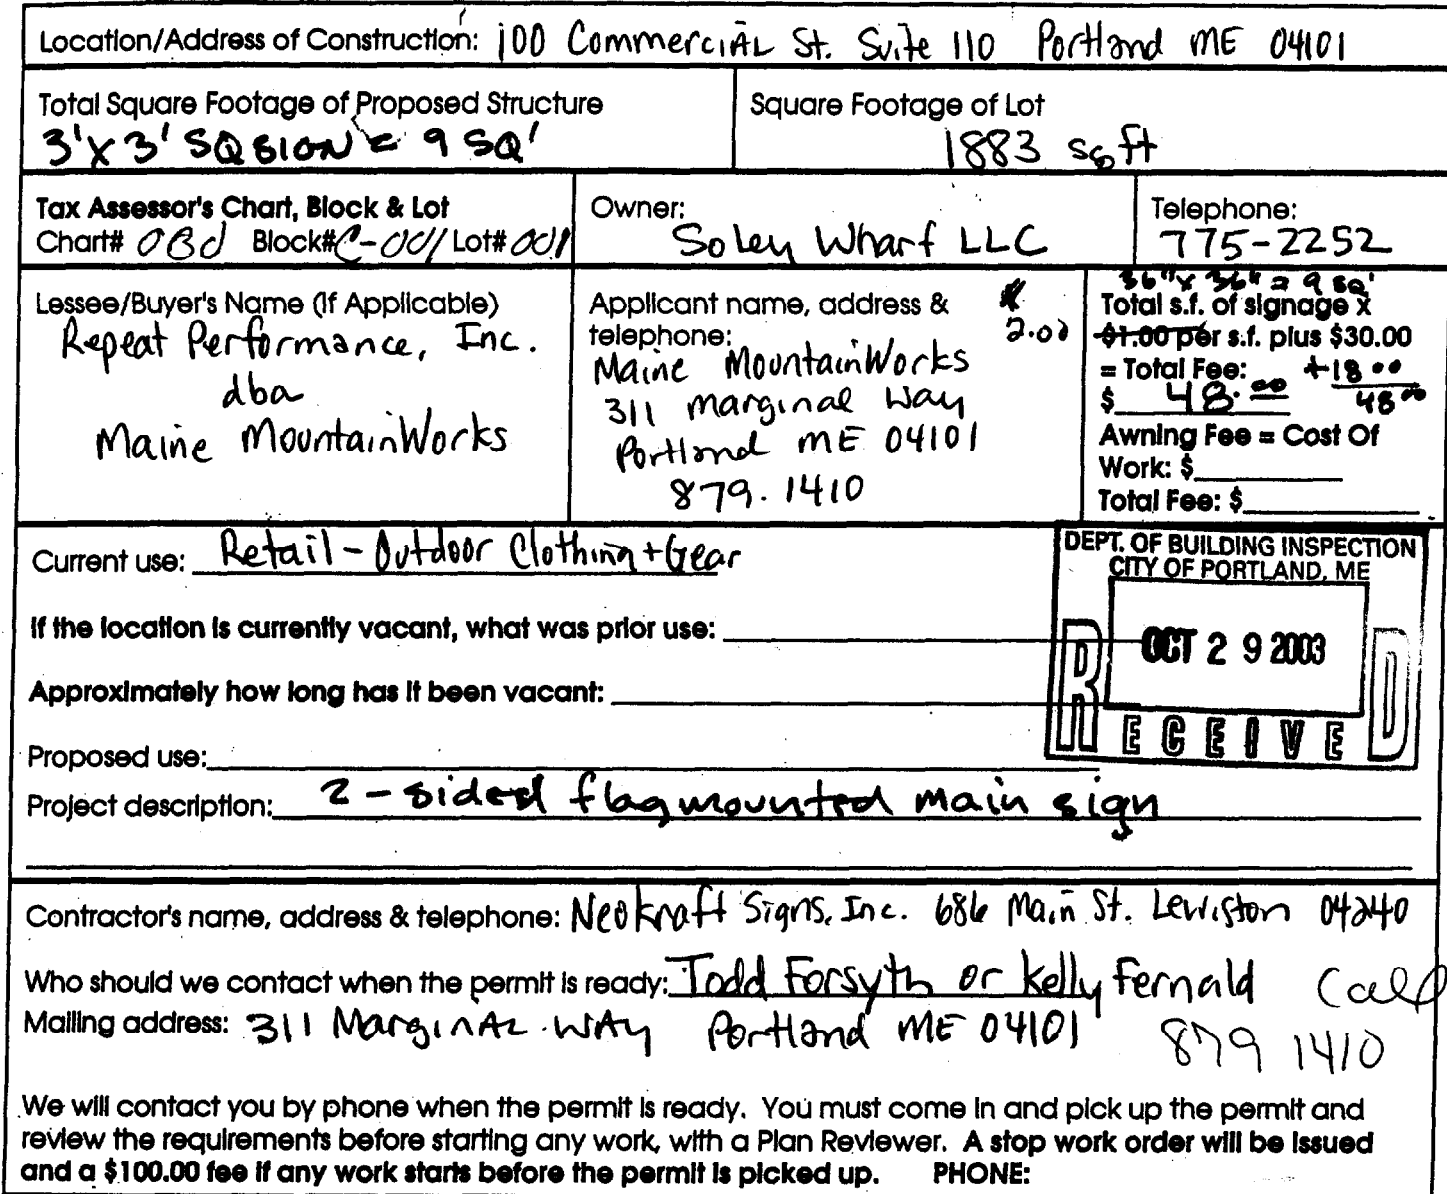 Location/Address of Construction: 100 Commercial St. Suite 110 Portland ME 04101
Total Square Footage of Proposed Structure
3'x3' SQ SIGN = 9 SQ'
Square Footage of Lot
1883 sq ft
Tax Assessor's Chart, Block & Lot
Chart# 030 Block# C-001 Lot# 001
Owner:
Soley Wharf LLC
Telephone:
775-2252
Lessee/Buyer's Name (If Applicable)
Repeat Performance, Inc.
dba
Maine MountainWorks
Applicant name, address &
telephone:
Maine MountainWorks
311 Marginal Way
Portland ME 04101
879.1410
36" x 36" = 9 SQ'
Total s.f. of signage x
$ 2.00 $1.00 per s.f. plus $30.00
= Total Fee: +18.00
$ 48.00 48.00
Awning Fee = Cost Of
Work: $
Total Fee: $
Current use: Retail - Outdoor Clothing + Gear
DEPT. OF BUILDING INSPECTION
CITY OF PORTLAND, ME
OCT 29 2003
RECEIVED
If the location is currently vacant, what was prior use:
Approximately how long has it been vacant:
Proposed use:
Project description: 2-sided flagmounted main sign
Contractor's name, address & telephone: Neokraft Signs, Inc. 686 Main St. Lewiston 04240
Who should we contact when the permit is ready: Todd Forsyth or Kelly Fernald Call
Mailing address: 311 Marginal Way Portland ME 04101 879 1410
We will contact you by phone when the permit is ready. You must come in and pick up the permit and
review the requirements before starting any work, with a Plan Reviewer. A stop work order will be issued
and a $100.00 fee if any work starts before the permit is picked up. PHONE: